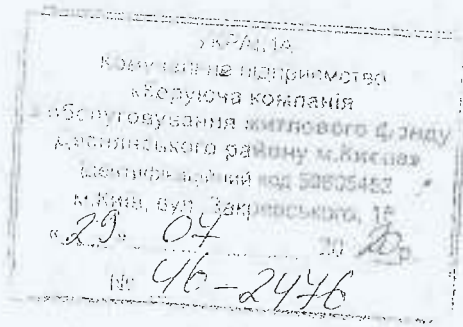 УКРАЇНА
Комунальне підприємство
«Керуюча компанія
з обслуговування житлового фонду
Деснянського району м.Києва»
Ідентифікаційний код
м.Київ, вул. Закревського, 15
«29» 07 20 20р
№ 46-2476